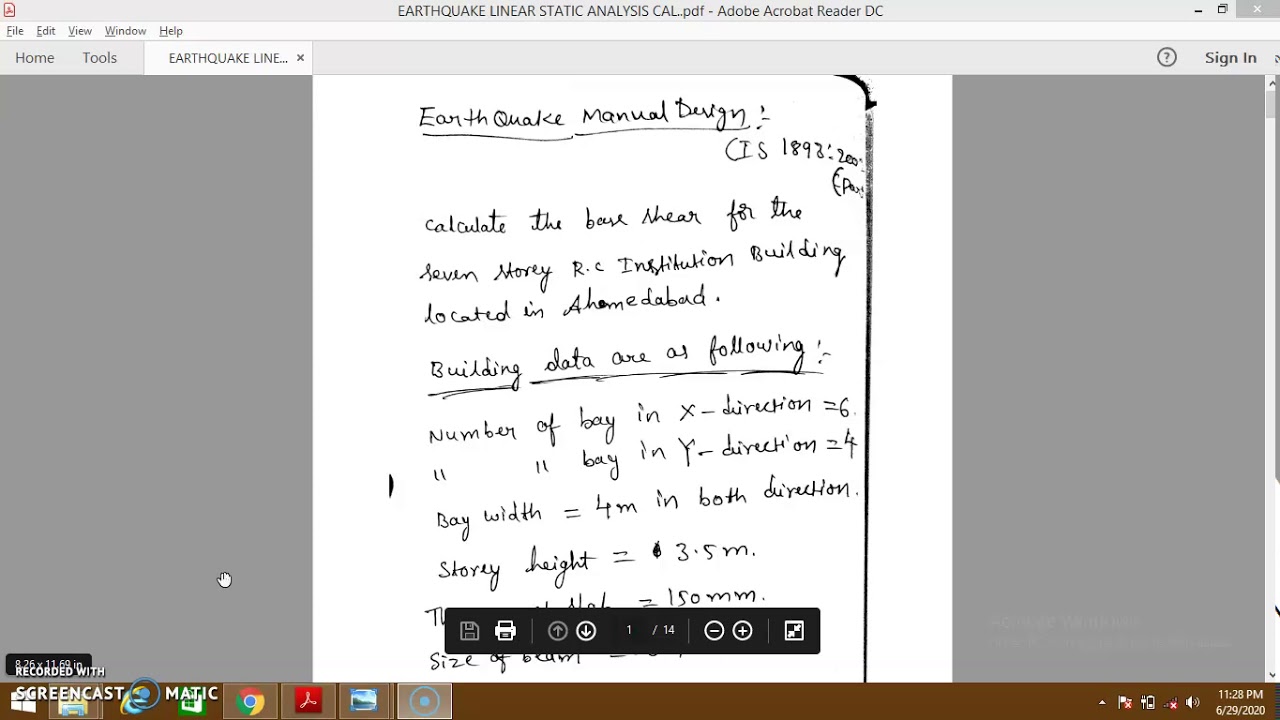 EARTHQUAKE LINEAR STATIC ANALYSIS CAL..pdf - Adobe Acrobat Reader DC
File Edit View Window Help
Home Tools EARTHQUAKE LINE... × Sign In
EarthQuake Manual Design :-
(IS 1893:200
calculate the base shear for the
seven storey R.C Institution Building
located in Ahemedabad.
Building data are as following :-
Number of bay in X-direction = 6.
" " bay in Y-direction = 4
Bay width = 4m in both direction.
Storey height = 3.5m.
= 150mm.
1 / 14
Size of beam =
8.26 x 11.69 in
RECORDED WITH
SCREENCAST MATIC
11:28 PM
6/29/2020